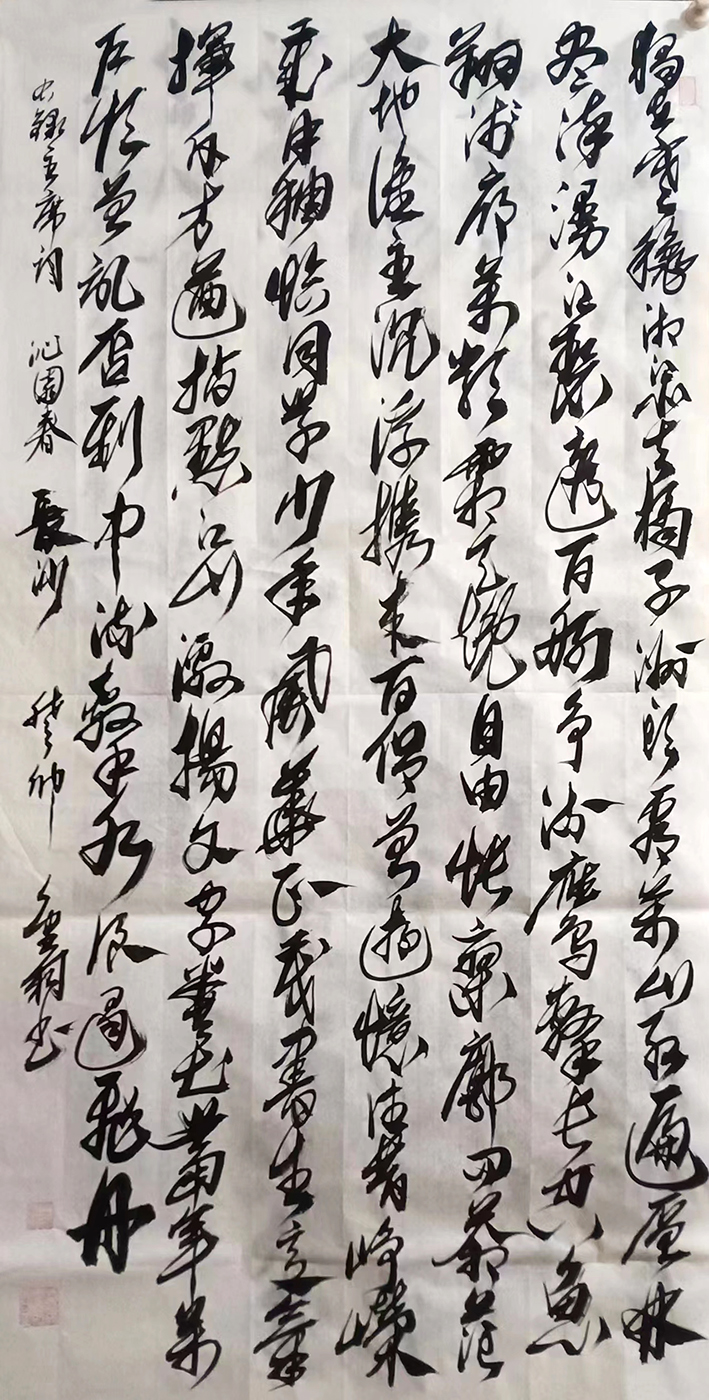 獨立寒穐湘江北去橘子洲頭看萬山紅遍層林
盡染漫江碧透百舸爭流鷹擊長空魚
翔淺底萬類霜天競自由悵寥廓問蒼茫
大地誰主沉浮攜來百侶曾遊憶往昔崢嶸
歲月稠恰同學少年風華正茂書生意氣
揮斥方遒指點江山激揚文字糞土當年萬
戶侯曾記否到中流擊水浪遏飛舟
錄主席詞 沁園春 長沙 癸卯 书